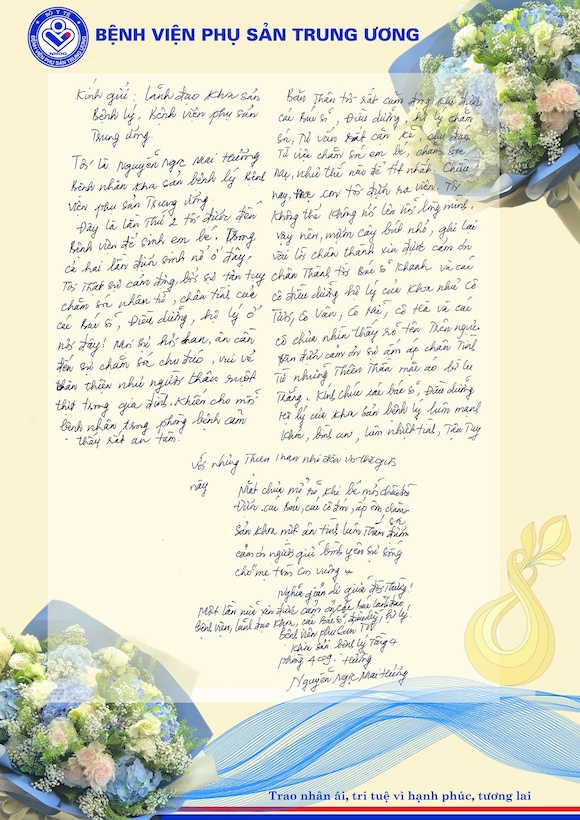 BỘ Y TẾ
NHOG
BỆNH VIỆN PHỤ SẢN TRUNG ƯƠNG
BỆNH VIỆN PHỤ SẢN TRUNG ƯƠNG
Kính gửi: Lãnh đạo Khoa sản
Bệnh lý. Bệnh viện phụ sản
Trung ương.
Tôi là Nguyễn Ngọc Mai Hương
Bệnh nhân khoa sản bệnh lý Bệnh
viện phụ sản Trung ương.
Đây là lần thứ 2 tôi được đến
Bệnh viện để sinh em bé. Trong
cả hai lần đến sinh nở ở đây.
Tôi thật sự cảm động, bởi sự tận tụy
chăm sóc nhân từ, chân tình của
các Bác sĩ, Điều dưỡng, hộ lý ở
nơi đây! từ sự hỏi han, ân cần
đến sự chăm sóc chu đáo, vui vẻ
thân thiện như người thân ruột
thịt trong gia đình. Khiến cho mỗi
bệnh nhân trong phòng bệnh cảm
thấy rất an tâm.
Bản thân tôi rất cảm động khi được
các Bác sĩ, Điều dưỡng, hộ lý chăm
sóc, Tư vấn rất cặn kẽ, chu đáo
Từ việc chăm sóc em bé, chăm sóc
mẹ, như thế nào để tốt nhất. Chiều
nay, mẹ con tôi được ra viện. Tôi
không thể không nói lên nỗi lòng mình,
vậy nên, mượn cây bút nhỏ, ghi lại
vài lời chân thành xin được cảm ơn
chân thành tới Bác sĩ Khanh và các
cô điều dưỡng hộ lý của Khoa như cô
cô Vân, cô cô và các
cô chưa nhìn thấy rõ tên Trên người
Xin được cảm ơn sự ấm áp chân tình
Từ những Thiên Thần mặc áo
Trắng. Kính chúc các bác sĩ, Điều dưỡng
Hộ lý của khoa sản bệnh lý luôn mạnh
Khỏe, bình an, luôn nhiệt tình, Tận Tụy
Với những Thiên Thần nhỏ đến với thế giới
này
Mắt chưa mở rõ, khi bé mới chào đời
Được các Bác, các cô đón, ấp ôm
Sản khoa một ân tình luôn thắm
cảm ơn người giữ bình yên sự sống
cho mẹ tròn con vuông
Nghĩa giản dị giữa đời Thường!
Một lần nữa xin được cảm ơn các Ban lãnh đạo
Bệnh viện, lãnh đạo Khoa, các Bác sĩ, hộ lý!
Bệnh viện phụ sản TW
Khoa sản bệnh lý Tầng 4
phòng 409.
Nguyễn Ngọc Mai Hương
Trao nhân ái, trí tuệ vì hạnh phúc, tương lai